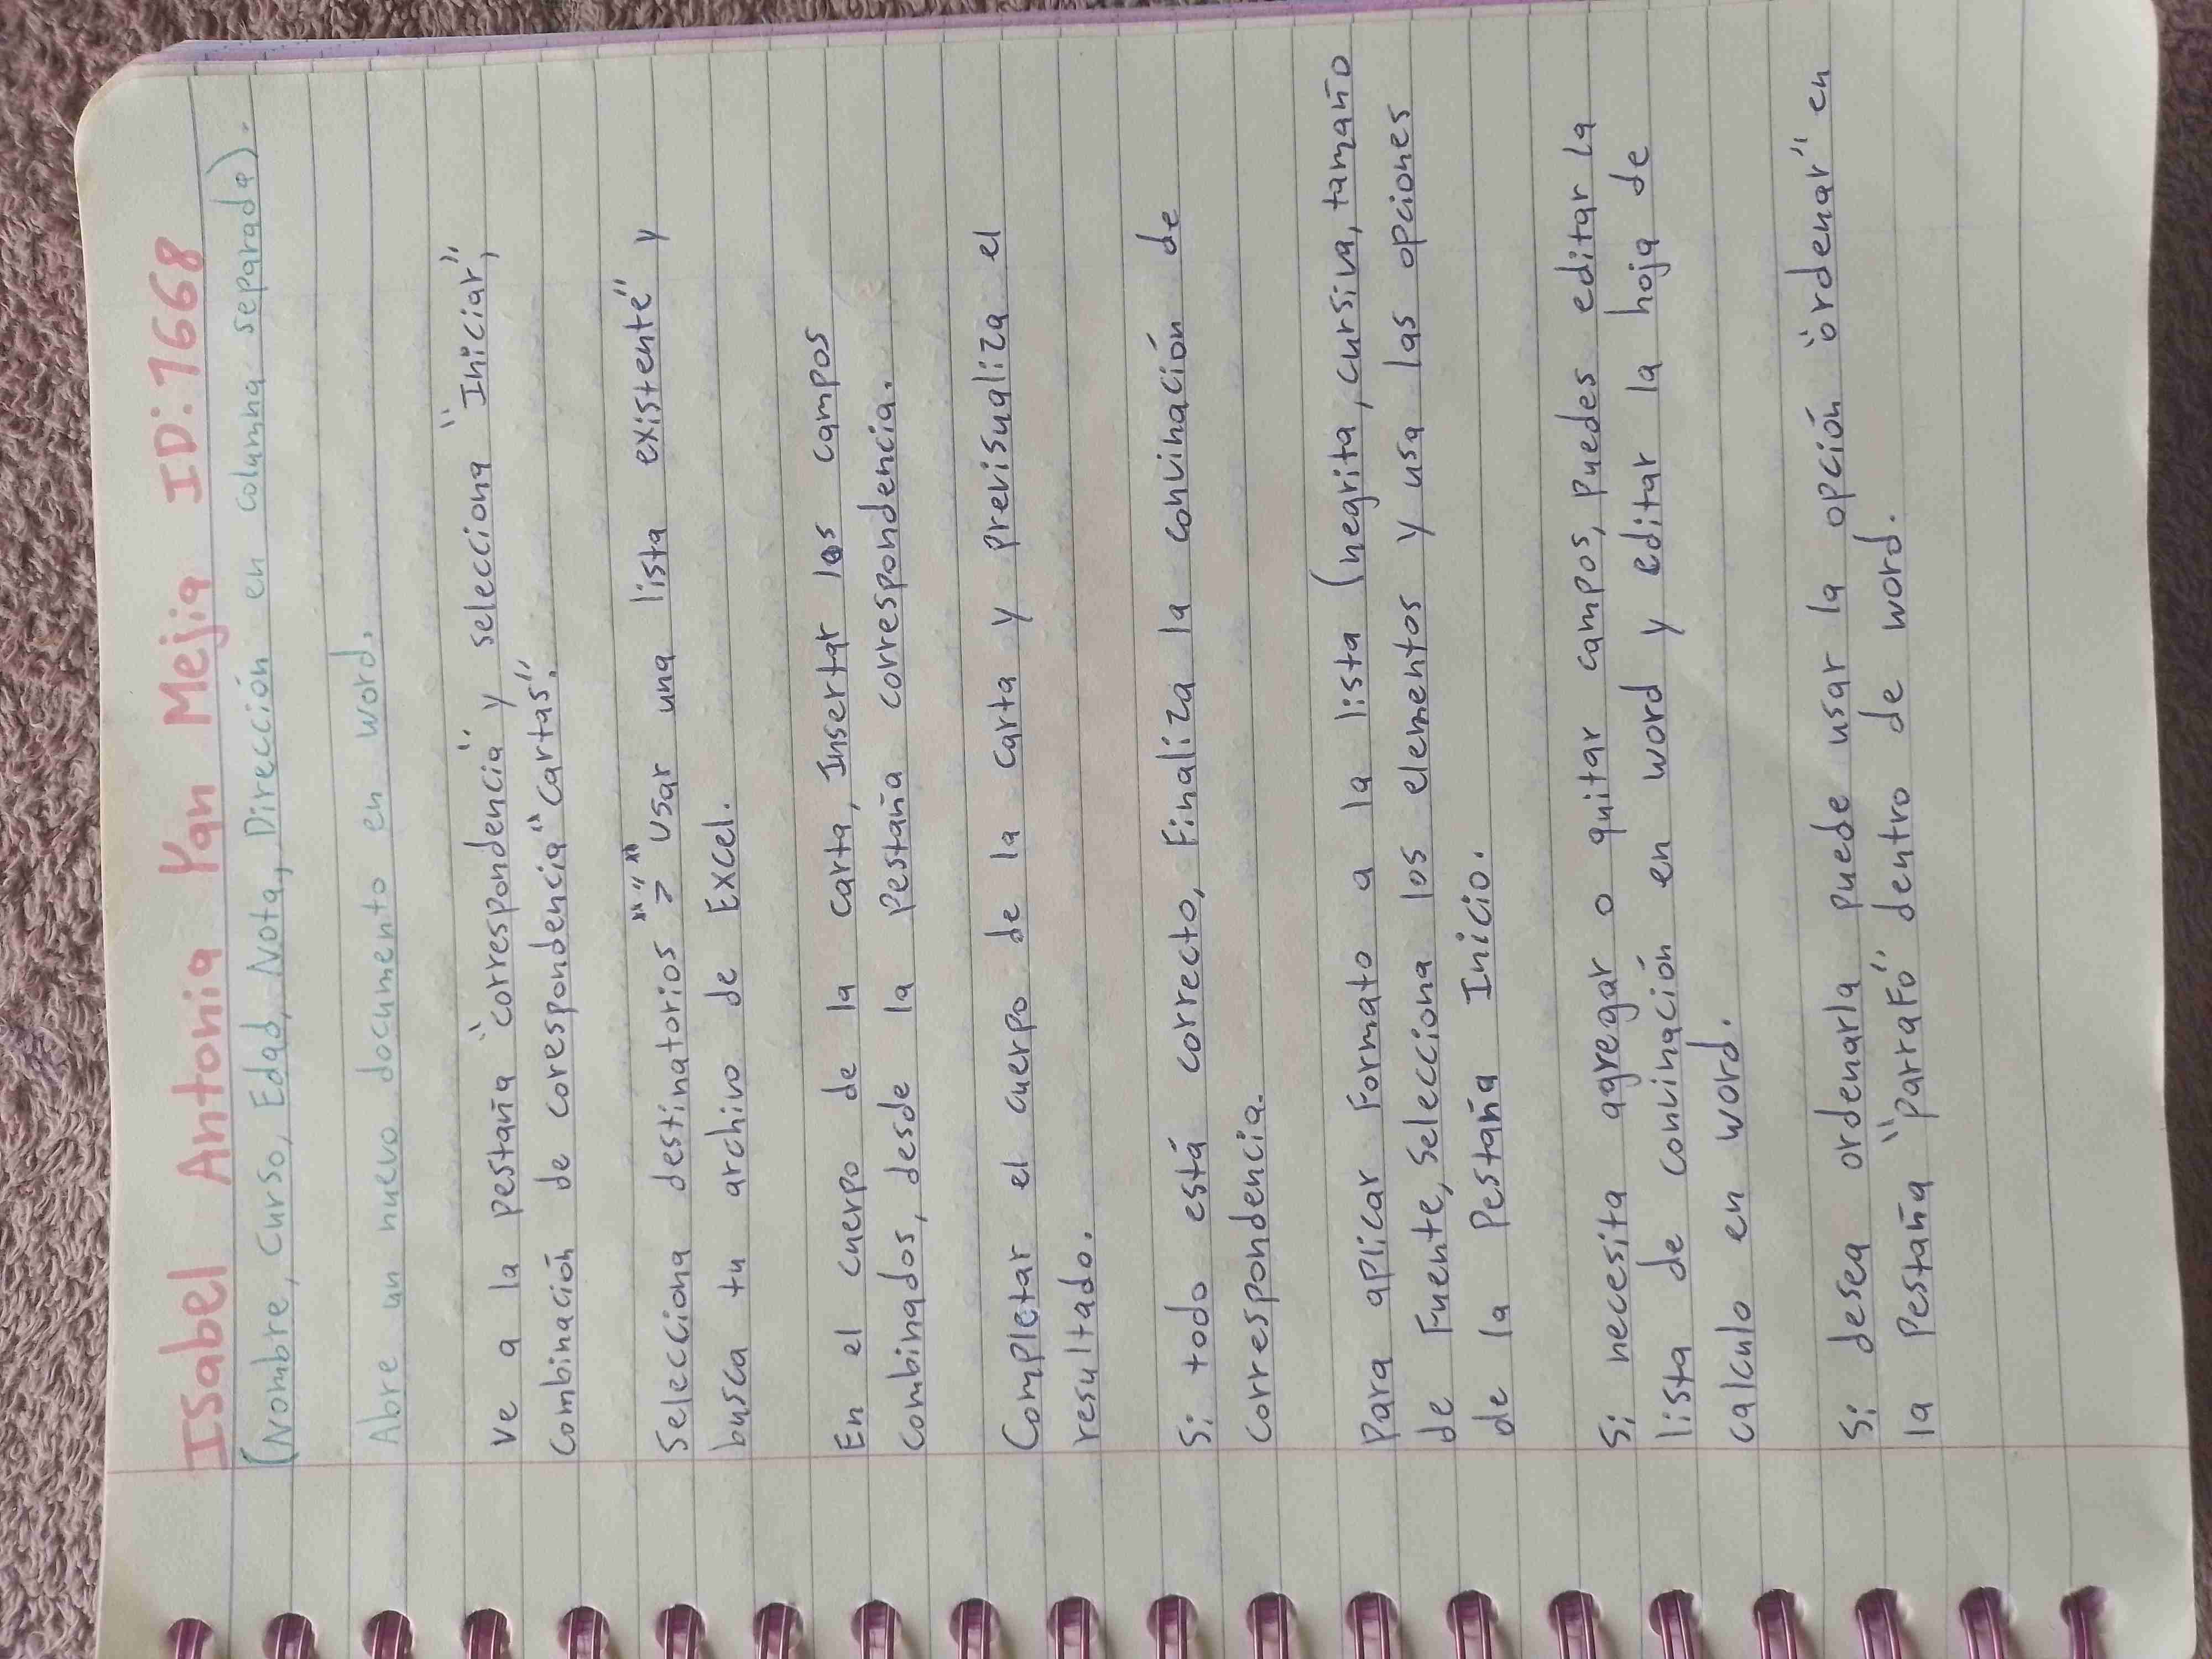 Isabel Antonia Yan Mejia ID:1668
(Nombre, Curso, Edad, Nota, Dirección en columna separada).
Abre un nuevo documento en word.
Ve a la pestaña "correspondencia" y selecciona "Iniciar",
Combinación de correspondencia" "cartas".
Selecciona destinatorios ">" usar una lista existente" y
busca tu archivo de Excel.
En el cuerpo de la carta, Insertar los campos
combinados, desde la Pestaña correspondencia.
Completar el cuerpo de la carta y Previsualiza el
resultado.
Si todo está correcto, Finaliza la convinación de
correspondencia.
Para aplicar Formato a la lista (negrita, cursiva, tamaño
de Fuente, selecciona los elementos y usa las opciones
de la Pestaña Inicio.
Si necesita agregar o quitar campos, puedes editar la
lista de convinación en word y editar la hoja de
calculo en word.
Si desea ordenarla puede usar la opción "ordenar" en
la Pestaña "Parrafo" dentro de word.